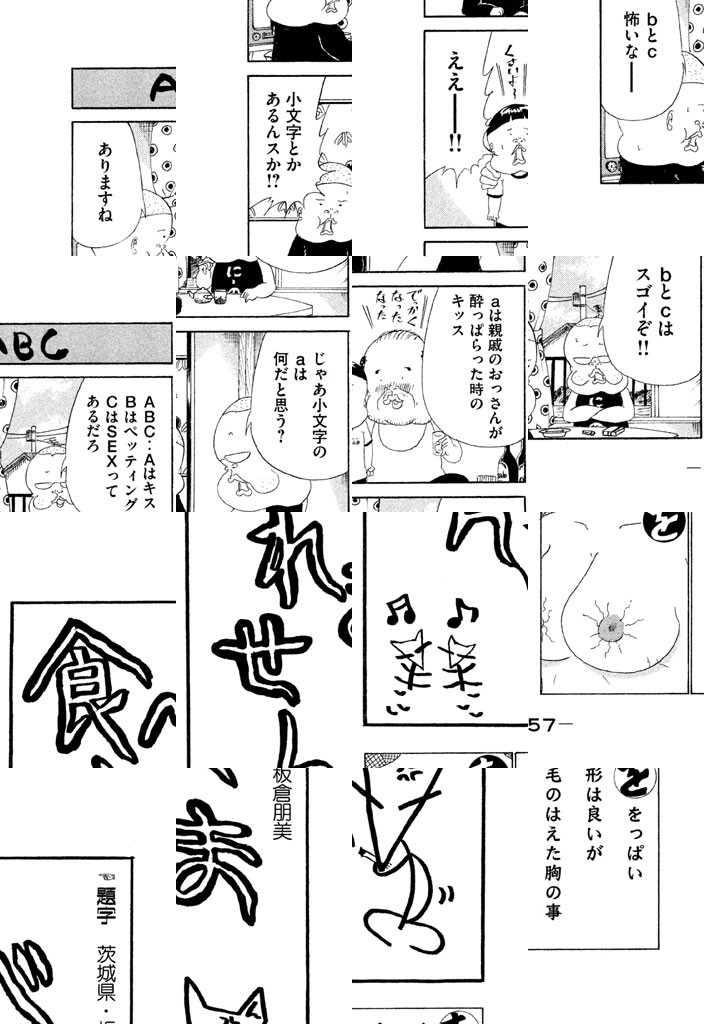 bとc
怖いなー
くさいよ〜
ええ——!!
小文字とか
あるんスか!?
A
ありますね
bとcは
スゴイぞ!!
aは親戚のおっさんが
酔っぱらった時の
キッス
でっかく
なった
なった
に
じゃあ小文字の
aは
何だと思う?
ABC
ABC‥Aはキス
Bはペッティング
CはSEXって
あるだろ
を
れ
せ
食
57—
を
をっぱい
形は良いが
毛のはえた胸の事
板倉朋美
ま
題字 茨城県・板